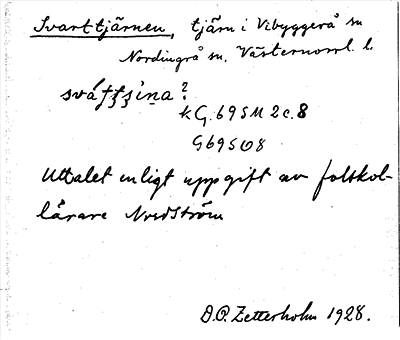 Svarttjärnen, tjärn i Vibyggerå sn
Nordingrå sn. Västernorrl. l.
kG. 69 SM 2 c. 8
G69SO8
Uttalet enligt uppgift av folkskol-
lärare Nordström
D.O. Zetterholm 1928.